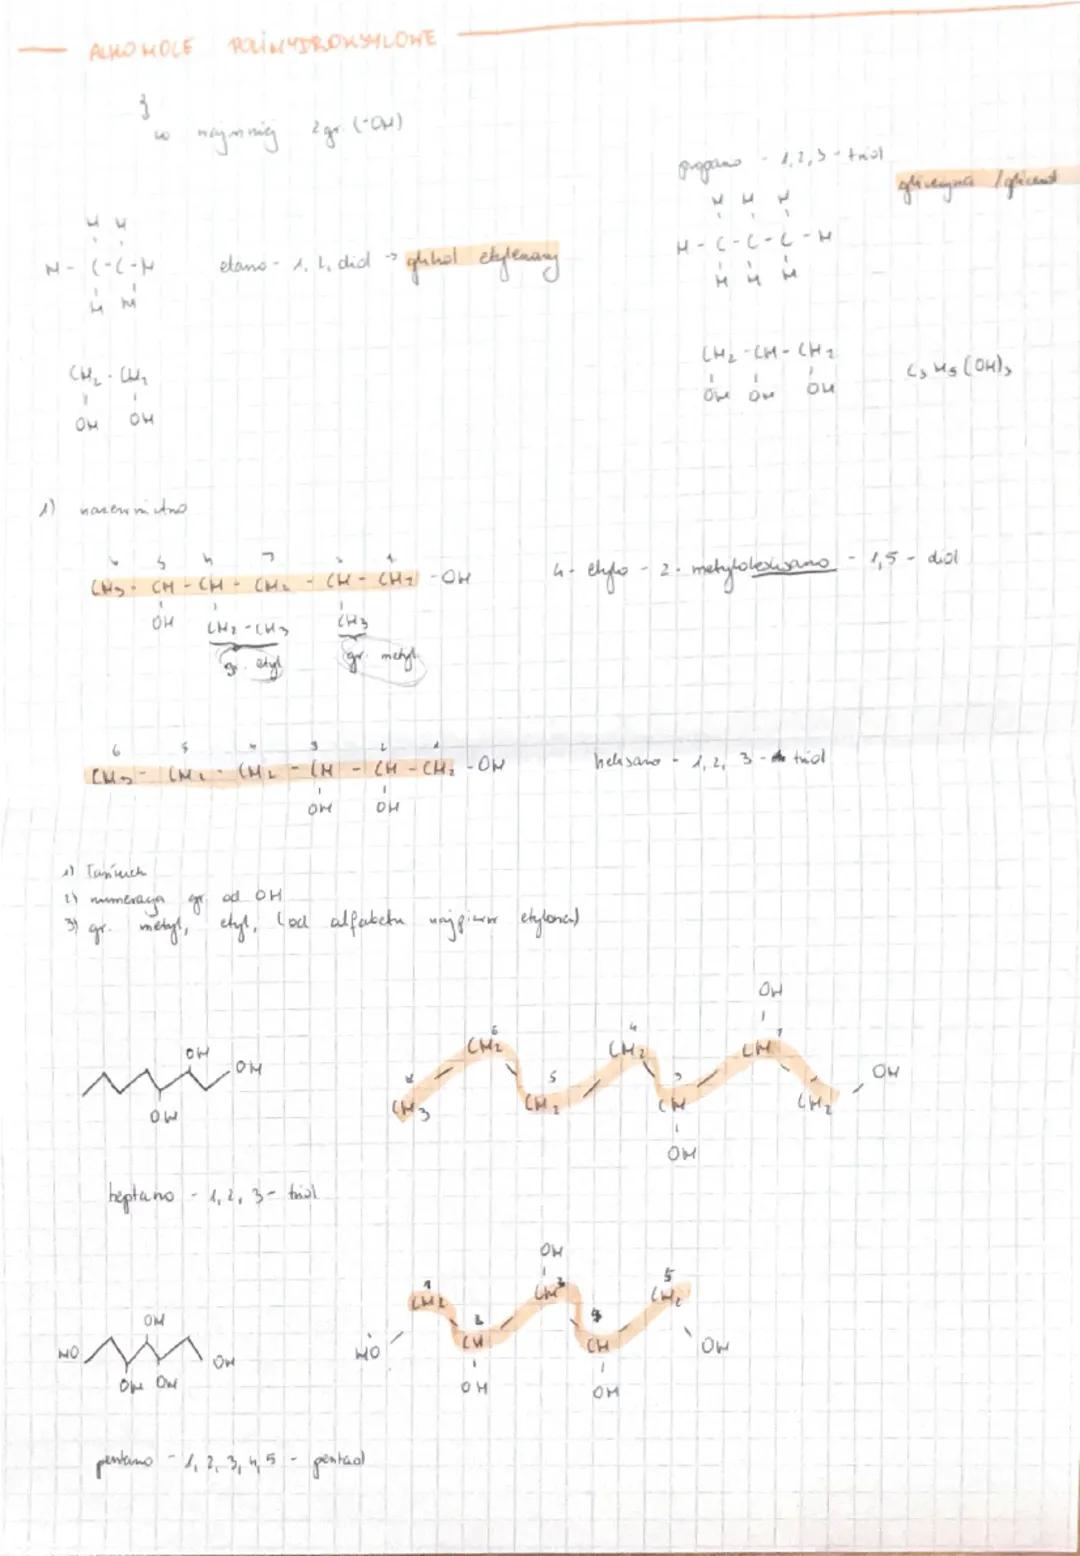 ALKOHOLE POLIHYDROKSYLOWE
co najmniej 2 gr. (-OH)
H H
H - C - C - H
H H
etano - 1, 2, diol → glikol etylenowy
CH2 - CH2
OH OH
propano - 1,2,3 - triol
gliceryna / glicerol
H H H
H - C - C - C - H
H H H
CH2 - CH - CH2
OH OH OH
C3H5(OH)3
1) nazewnictwo
6 5 4 3 2 1
CH3 - CH - CH - CH2 - CH - CH2 - OH
OH CH2 - CH3 CH3
gr. etyl gr. metyl
4 - etylo - 2 - metyloheksano - 1,5 - diol
6 5 4 3 2 1
CH3 - CH2 - CH2 - CH - CH - CH2 - OH
OH OH
heksano - 1, 2, 3 - triol
1) łańcuch
2) numeracja gr. od OH
3) gr. metyl, etyl, (od alfabetu najpierw etylowa)
OH
OH
OH
heptano - 1, 2, 3 - triol
OH
6 4
CH2 CH2 CH OH
5 3
CH3 CH2 CH CH2
OH
HO OH OH
OH OH
pentano - 1, 2, 3, 4, 5 - pentaol
OH
1 3 5
CH2 CH CH2
HO CH CH OH
OH OH